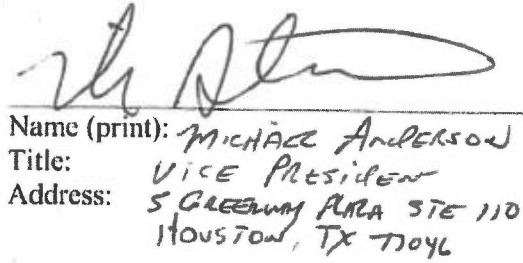 Name (print): MICHAEL ANDERSON
Title: VICE PRESIDENT
Address: 5 GREENWAY PLAZA STE 110
HOUSTON, TX 77046